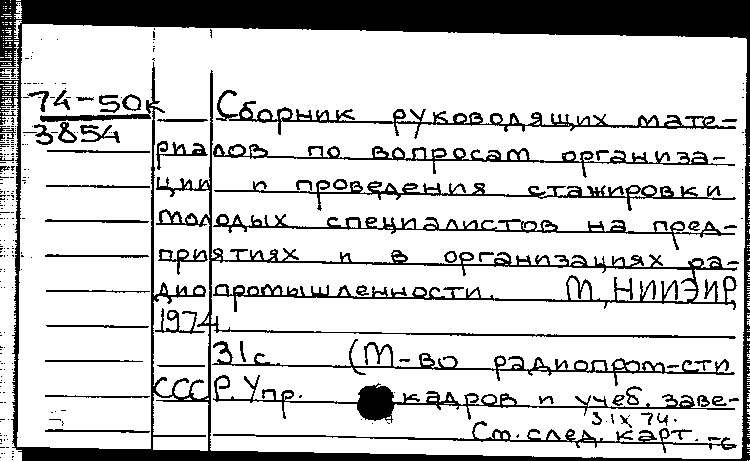 74-50к
3854
Сборник руководящих мате-
риалов по вопросам организа-
ции и проведения стажировки
молодых специалистов на пред-
приятиях и в организациях ра-
диопромышленности. М., НИИЭИР,
1974.
31с (М-во радиопром-сти
СССР. Упр. кадров и учеб. заве-
3.IX 74.
См. след. карт. ГБ